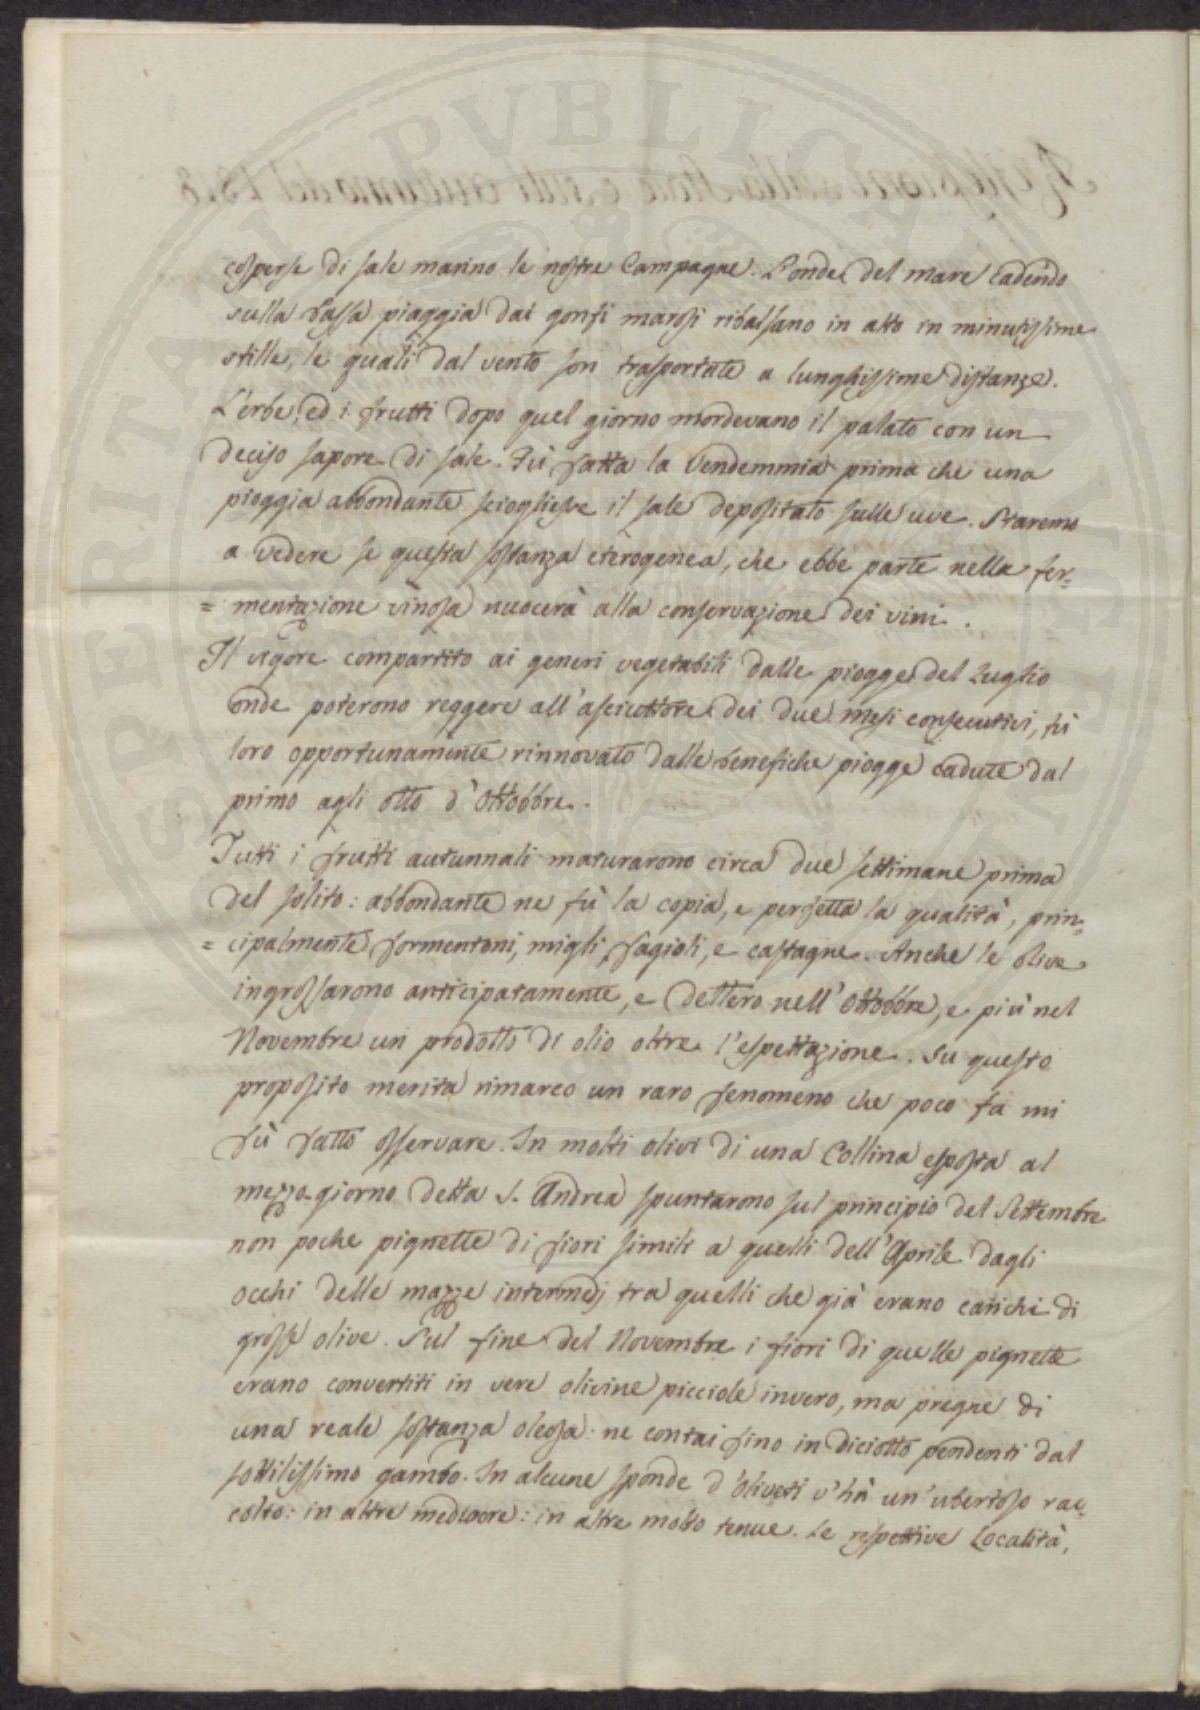 cosperse di sale marino le nostre Campagne. L'onde del mare cadendo
sulla bassa piaggia dai gonfi marosi ribalsano in alto in minutissime
stille, le quali dal vento son trasportate a lunghissime distanze.
L'erbe, ed i frutti dopo quel giorno mordevano il palato con un
deciso sapore di sale. Fù fatta la Vendemmia prima che una
pioggia abbondante sciogliesse il sale depositato sulle uve. Staremo
a vedere se questa sostanza eterogenea, che ebbe parte nella fer=
= mentazione vinosa nuocerà alla conservazione dei vini.
Il vigore compartito ai generi vegetabili dalle piogge del Luglio
onde poterono reggere all'asciuttore dei due mesi consecutivi, fù
loro opportunamente rinnovato dalle benefiche piogge cadute dal
primo agli otto d'Ottobbre.
Tutti i frutti autunnali maturarono circa due settimane prima
del solito: abbondante ne fù la copia, e perfetta la qualità, prin=
= cipalmente formentoni, migli, fagioli, e castagne. Anche le olive
ingrossarono anticipatamente, e dettero nell'Ottobbre, e più nel
Novembre un prodotto di olio oltre l'espettazione. Su questo
proposito merita rimarco un raro fenomeno che poco fa mi
fù fatto osservare. In molti olivi di una Collina esposta al
mezzo-giorno detta S. Andrea spuntarono sul principio del Settembre
non poche pignette di fiori simili a quelli dell'Aprile dagli
occhi delle mazze intermedj tra quelli che già erano carichi di
grosse olive. Sul fine del Novembre i fiori di quelle pignette
erano convertiti in vere olivine picciole invero, ma pregne di
una reale sostanza oleosa: ne contai fino in diciotto pendenti dal
sottilissimo gambo. In alcune sponde d'oliveti v'hà un'ubertoso rac=
colto: in altre mediocre: in altre molto tenue. Le respettive Località,
SPERITAS PVBLICA